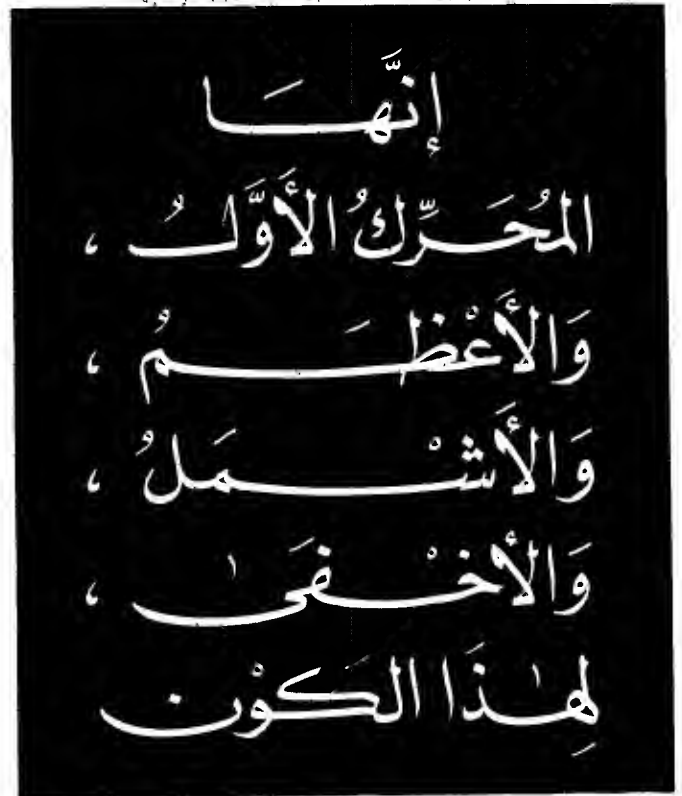 إِنَّهَا
المُحَرِّكُ الأَوَّلُ ،
وَالأَعْظَمُ ،
وَالأَشْمَلُ ،
وَالأَخْفَىٰ ،
لِهٰذَا الكَوْن